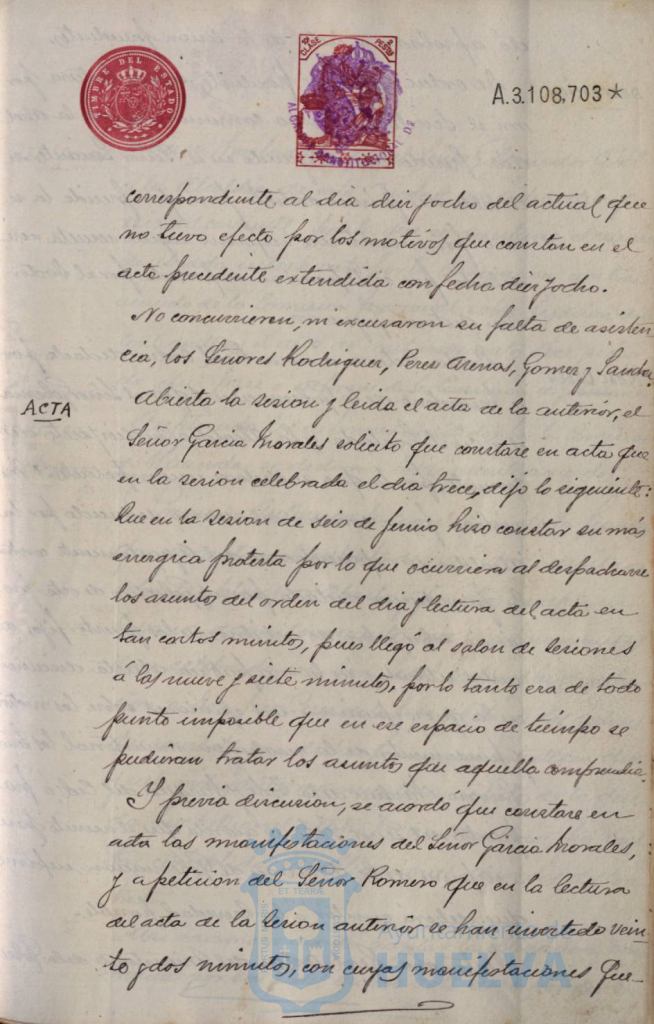 TIMBRE DEL ESTADO
10ª CLASE
2 PESETAS
A.3.108,703*
correspondiente al dia diez y ocho del actual que
no tuvo efecto por los motivos que constan en el
acta precedente extendida con fecha diez y ocho.
No concurrieron, ni excusaron su falta de asisten
cia, los Señores Rodriguez, Perez Arenas, Gomez y Sanchez
ACTA
Abierta la sesion y leida el acta de la anterior, el
Señor Garcia Morales solicito que constase en acta que
en la sesion celebrada el dia trece, dijo lo siguiente:
Que en la sesion de seis de Junio hizo constar su más
energica protesta por lo que ocurriera al despacharse
los asuntos del orden del dia y lectura del acta en
tan cortos minutos, pues llegó al salon de sesiones
á las nueve y siete minutos, por lo tanto era de todo
punto imposible que en ese espacio de tiempo se
pudieran tratar los asuntos que aquella comprendia.
Y previa discusion, se acordó que constase en
acta las manifestaciones del Señor Garcia Morales,
y a peticion del Señor Romero que en la lectura
del acta de la sesion anterior se han invertido vein-
te y dos minutos, con cuyas manifestaciones que-
Ayuntamiento de
HUELVA